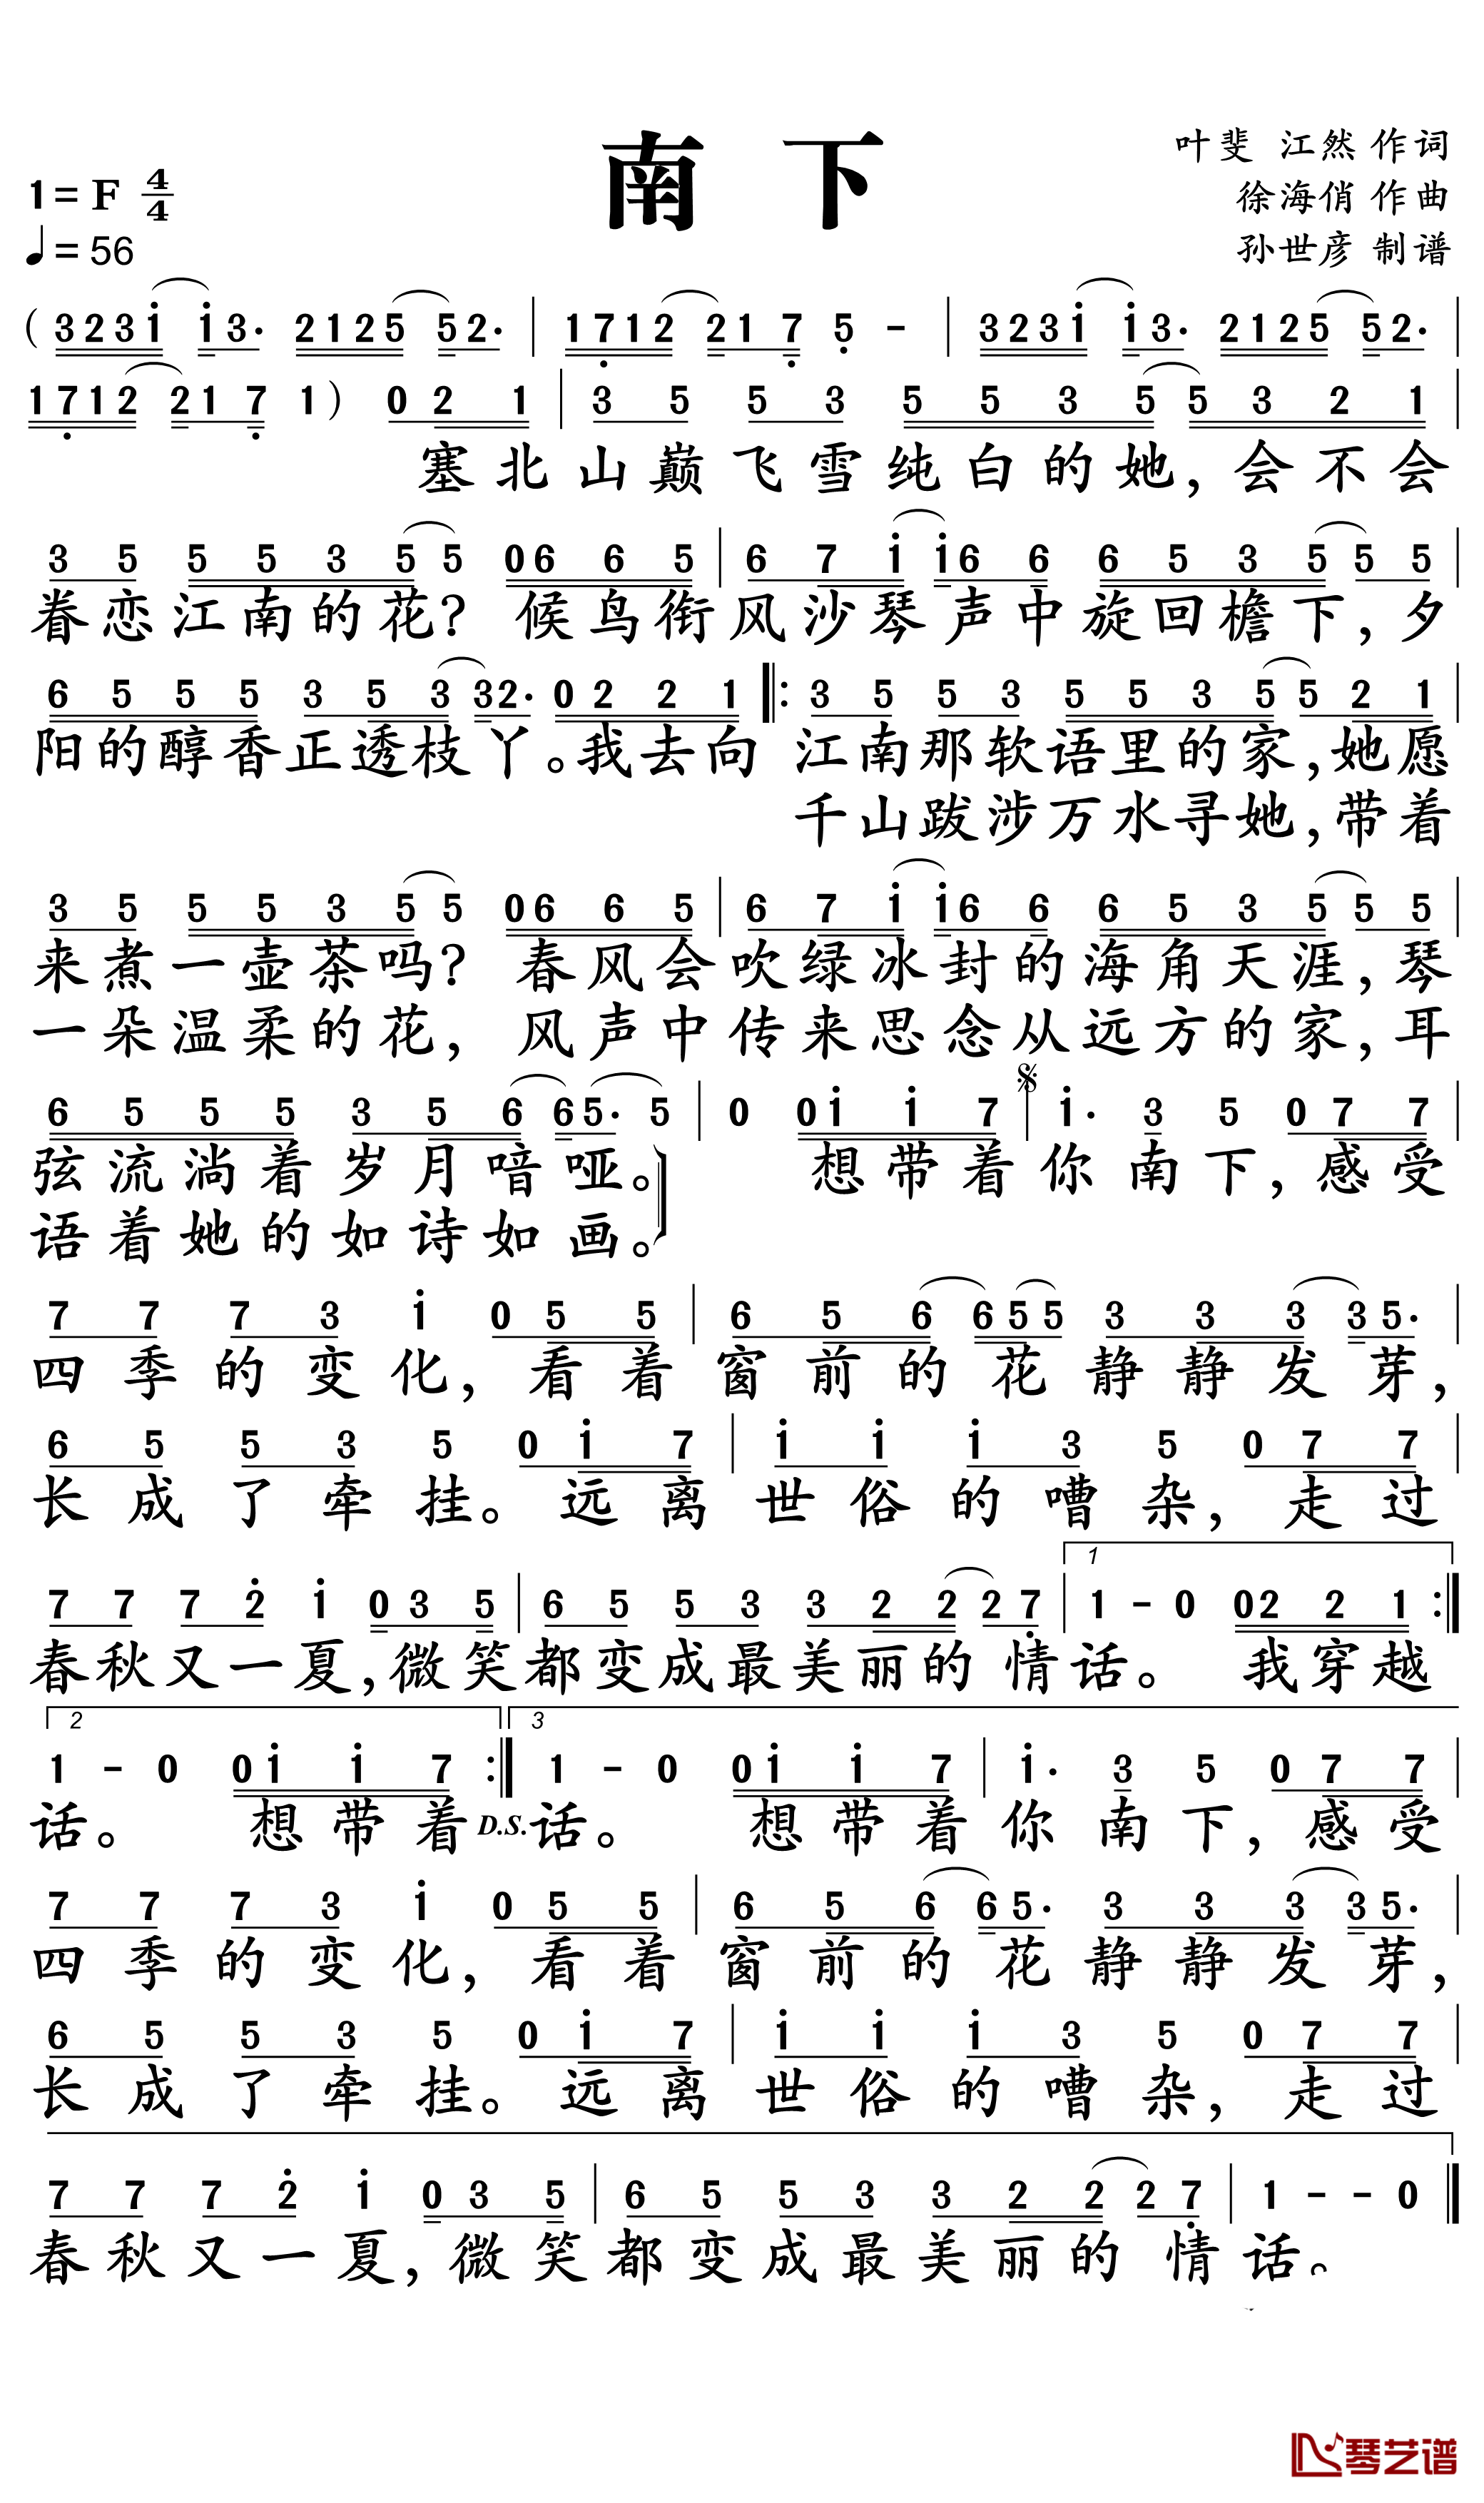 南 下
叶斐 江然 作词
徐海俏 作曲
孙世彦 制谱
1=F 4/4
♩=56
(3231 13. 2125 52. | 1712 21 7 5 - | 3231 13. 2125 52. |
1712 21 7 1) 0 2 1 | 3 5 5 3 5 5 3 5 5 3 2 1 |
塞北山巅飞雪纯白的她,会不会
3 5 5 5 3 5 5 06 6 5 | 6 7 1 16 6 6 5 3 5 5 5 |
眷恋江南的花? 候鸟衔风沙琴声中旋回檐下,夕
6 5 5 5 3 5 3 32. 02 2 1 |: 3 5 5 3 5 5 3 5 5 2 1 |
阳的醇香正透枝丫。我去向 江南那软语里的家,她愿
千山跋涉万水寻她,带着
3 5 5 5 3 5 5 06 6 5 | 6 7 1 16 6 6 5 3 5 5 5 |
来煮一壶茶吗? 春风会吹绿冰封的海角天涯,琴
一朵温柔的花, 风声中传来思念从远方的家,耳
6 5 5 5 3 5 6 65. 5 | 0 01 1 7 | 1. 3 5 0 7 7 |
弦流淌着岁月喑哑。 想带着你南下,感受
语着她的如诗如画。
7 7 7 3 1 0 5 5 | 6 5 6 655 3 3 3 35. |
四季的变化,看着窗前的花静静发芽,
6 5 5 3 5 0 1 7 | 1 1 1 3 5 0 7 7 |
长成了牵挂。远离世俗的嘈杂,走过
1
7 7 7 2 1 0 3 5 | 6 5 5 3 3 2 2 2 7 | 1 - 0 02 2 1 :|
春秋又一夏,微笑都变成最美丽的情话。 我穿越
2 3
1 - 0 01 1 7 :| 1 - 0 01 1 7 | 1. 3 5 0 7 7 |
话。 想带着D.S.话。 想带着你南下,感受
7 7 7 3 1 0 5 5 | 6 5 6 6 5. 3 3 3 35. |
四季的变化,看着窗前的花静静发芽,
6 5 5 3 5 0 1 7 | 1 1 1 3 5 0 7 7 |
长成了牵挂。远离世俗的嘈杂,走过
7 7 7 2 1 0 3 5 | 6 5 5 3 3 2 2 2 7 | 1 - - 0 |
春秋又一夏,微笑都变成最美丽的情话。
琴艺谱